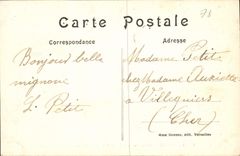 78
Carte Postale
Correspondance
Adresse
Bonjour belle
mignonne
L. Petit
Madame Petit
chez Madame
à Villequiers
(Cher)
édit. Versailles